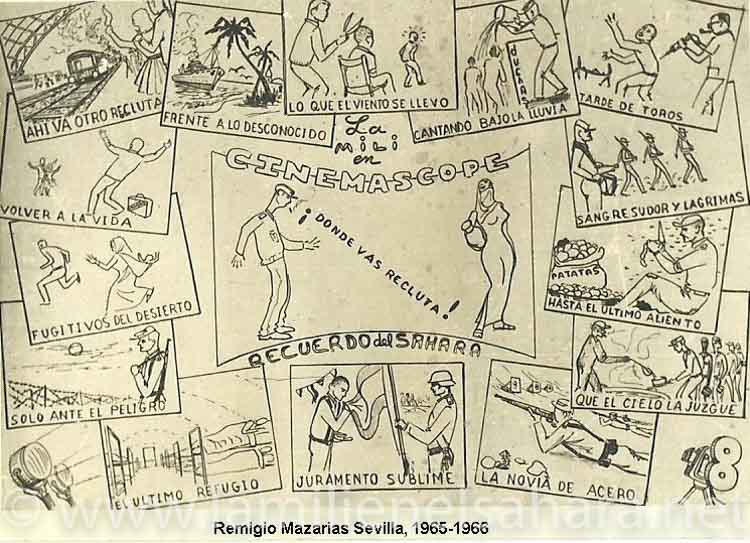 AHI VA OTRO RECLUTA
FRENTE A LO DESCONOCIDO
LO QUE EL VIENTO SE LLEVO
DUCHAS
CANTANDO BAJO LA LLUVIA
TARDE DE TOROS
La
MILI
en
CINEMASCOPE
VOLVER A LA VIDA
¡DONDE VAS RECLUTA!
SANGRE SUDOR Y LAGRIMAS
FUGITIVOS DEL DESIERTO
PATATAS
HASTA EL ULTIMO ALIENTO
RECUERDO del SAHARA
SOLO ANTE EL PELIGRO
QUE EL CIELO LA JUZGUE
EL ULTIMO REFUGIO
JURAMENTO SUBLIME
LA NOVIA DE ACERO
© www.lamilienelsahara.net
Remigio Mazarias Sevilla, 1965-1966